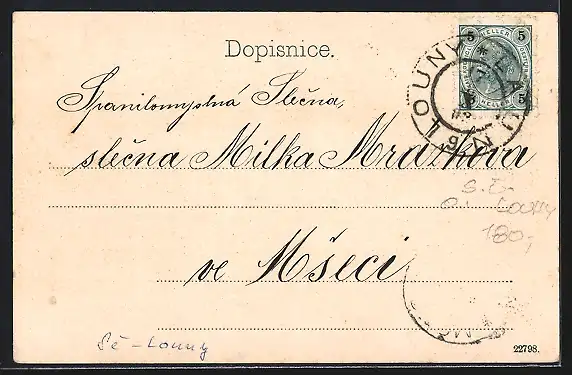 Dopisnice.
5 HELLER 5
LOUNY * LAUN
Spanilomyslná Slečna,
slečna Milka Mrázkova
S.Č.
LOUNY
180,-
ve Mšeci
Sč - Louny
22798.